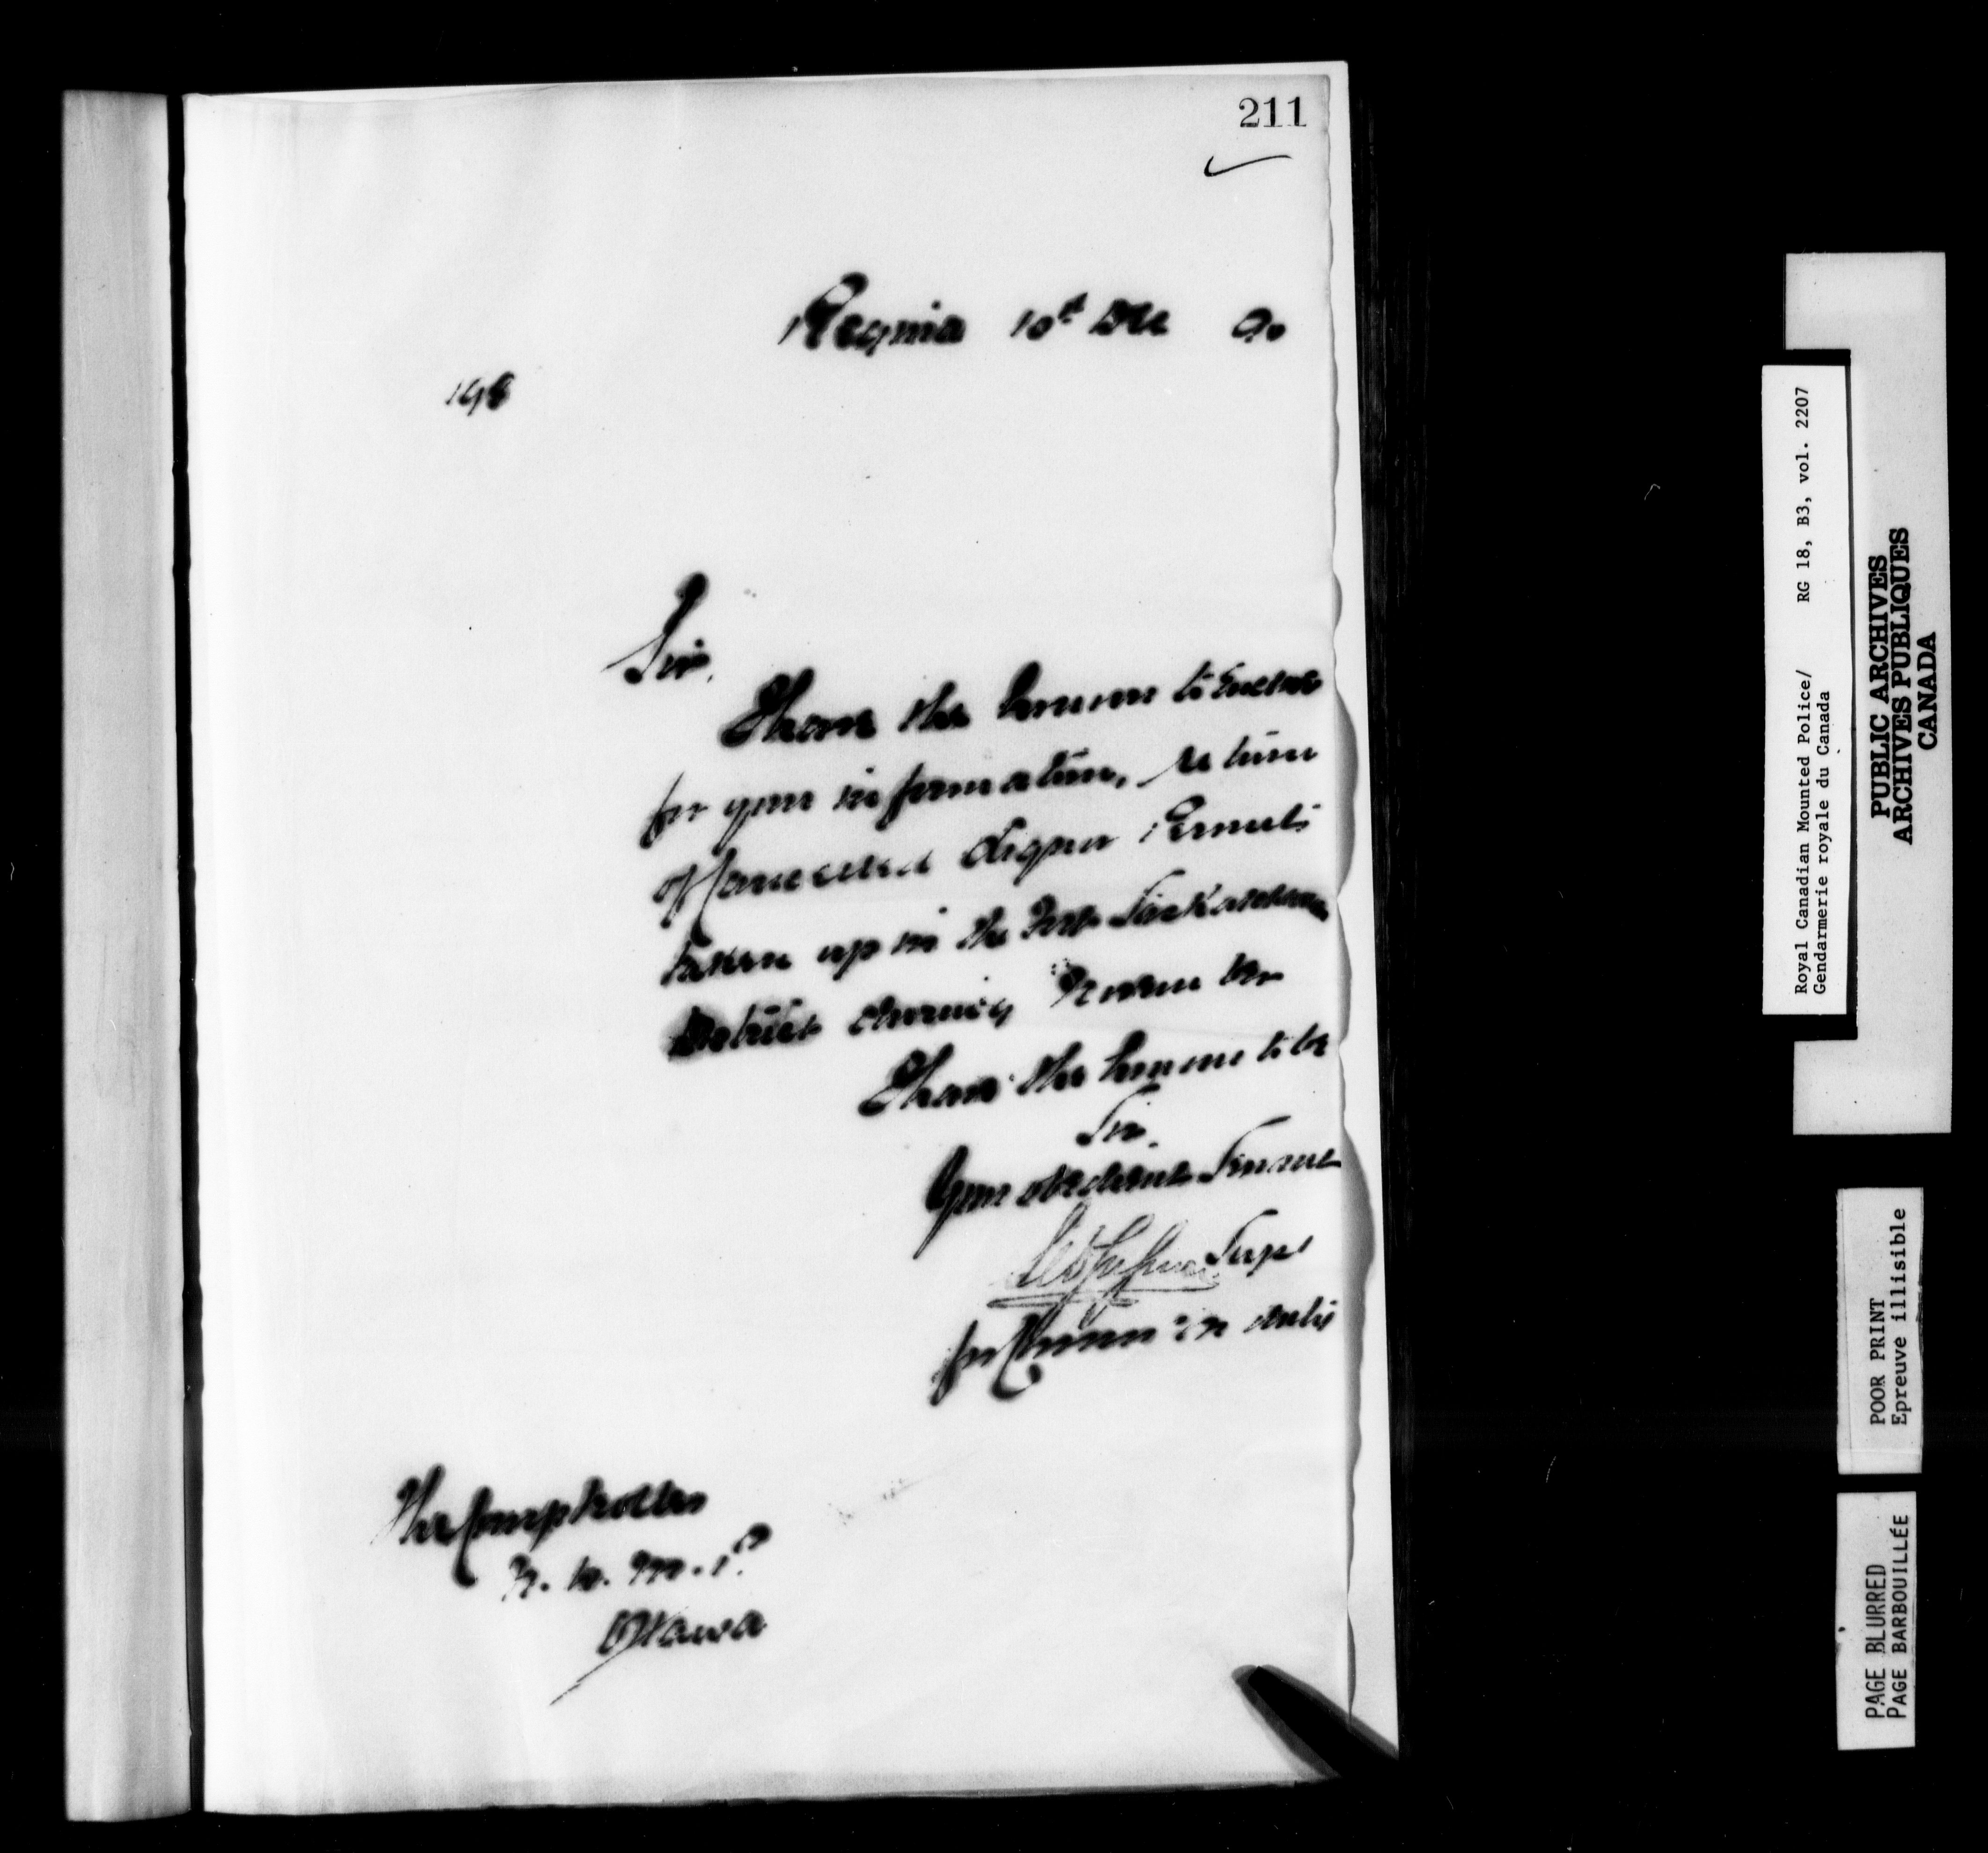 211
Regina 10th Dec 90
198
Sir,
I have the honour to enclose
for your information, return
of cancelled Liquor Permits
taken up in the Fort Saskatchewan
District during November
I have the honour to be
Sir,
Your obedient Servant
Supt
for Commr in
The Comptroller
N. W. M. P.
Ottawa
Royal Canadian Mounted Police/ RG 18, B3, vol. 2207
Gendarmerie royale du Canada
PUBLIC ARCHIVES
ARCHIVES PUBLIQUES
CANADA
POOR PRINT
Epreuve illisible
PAGE BLURRED
PAGE BARBOUILLÉE